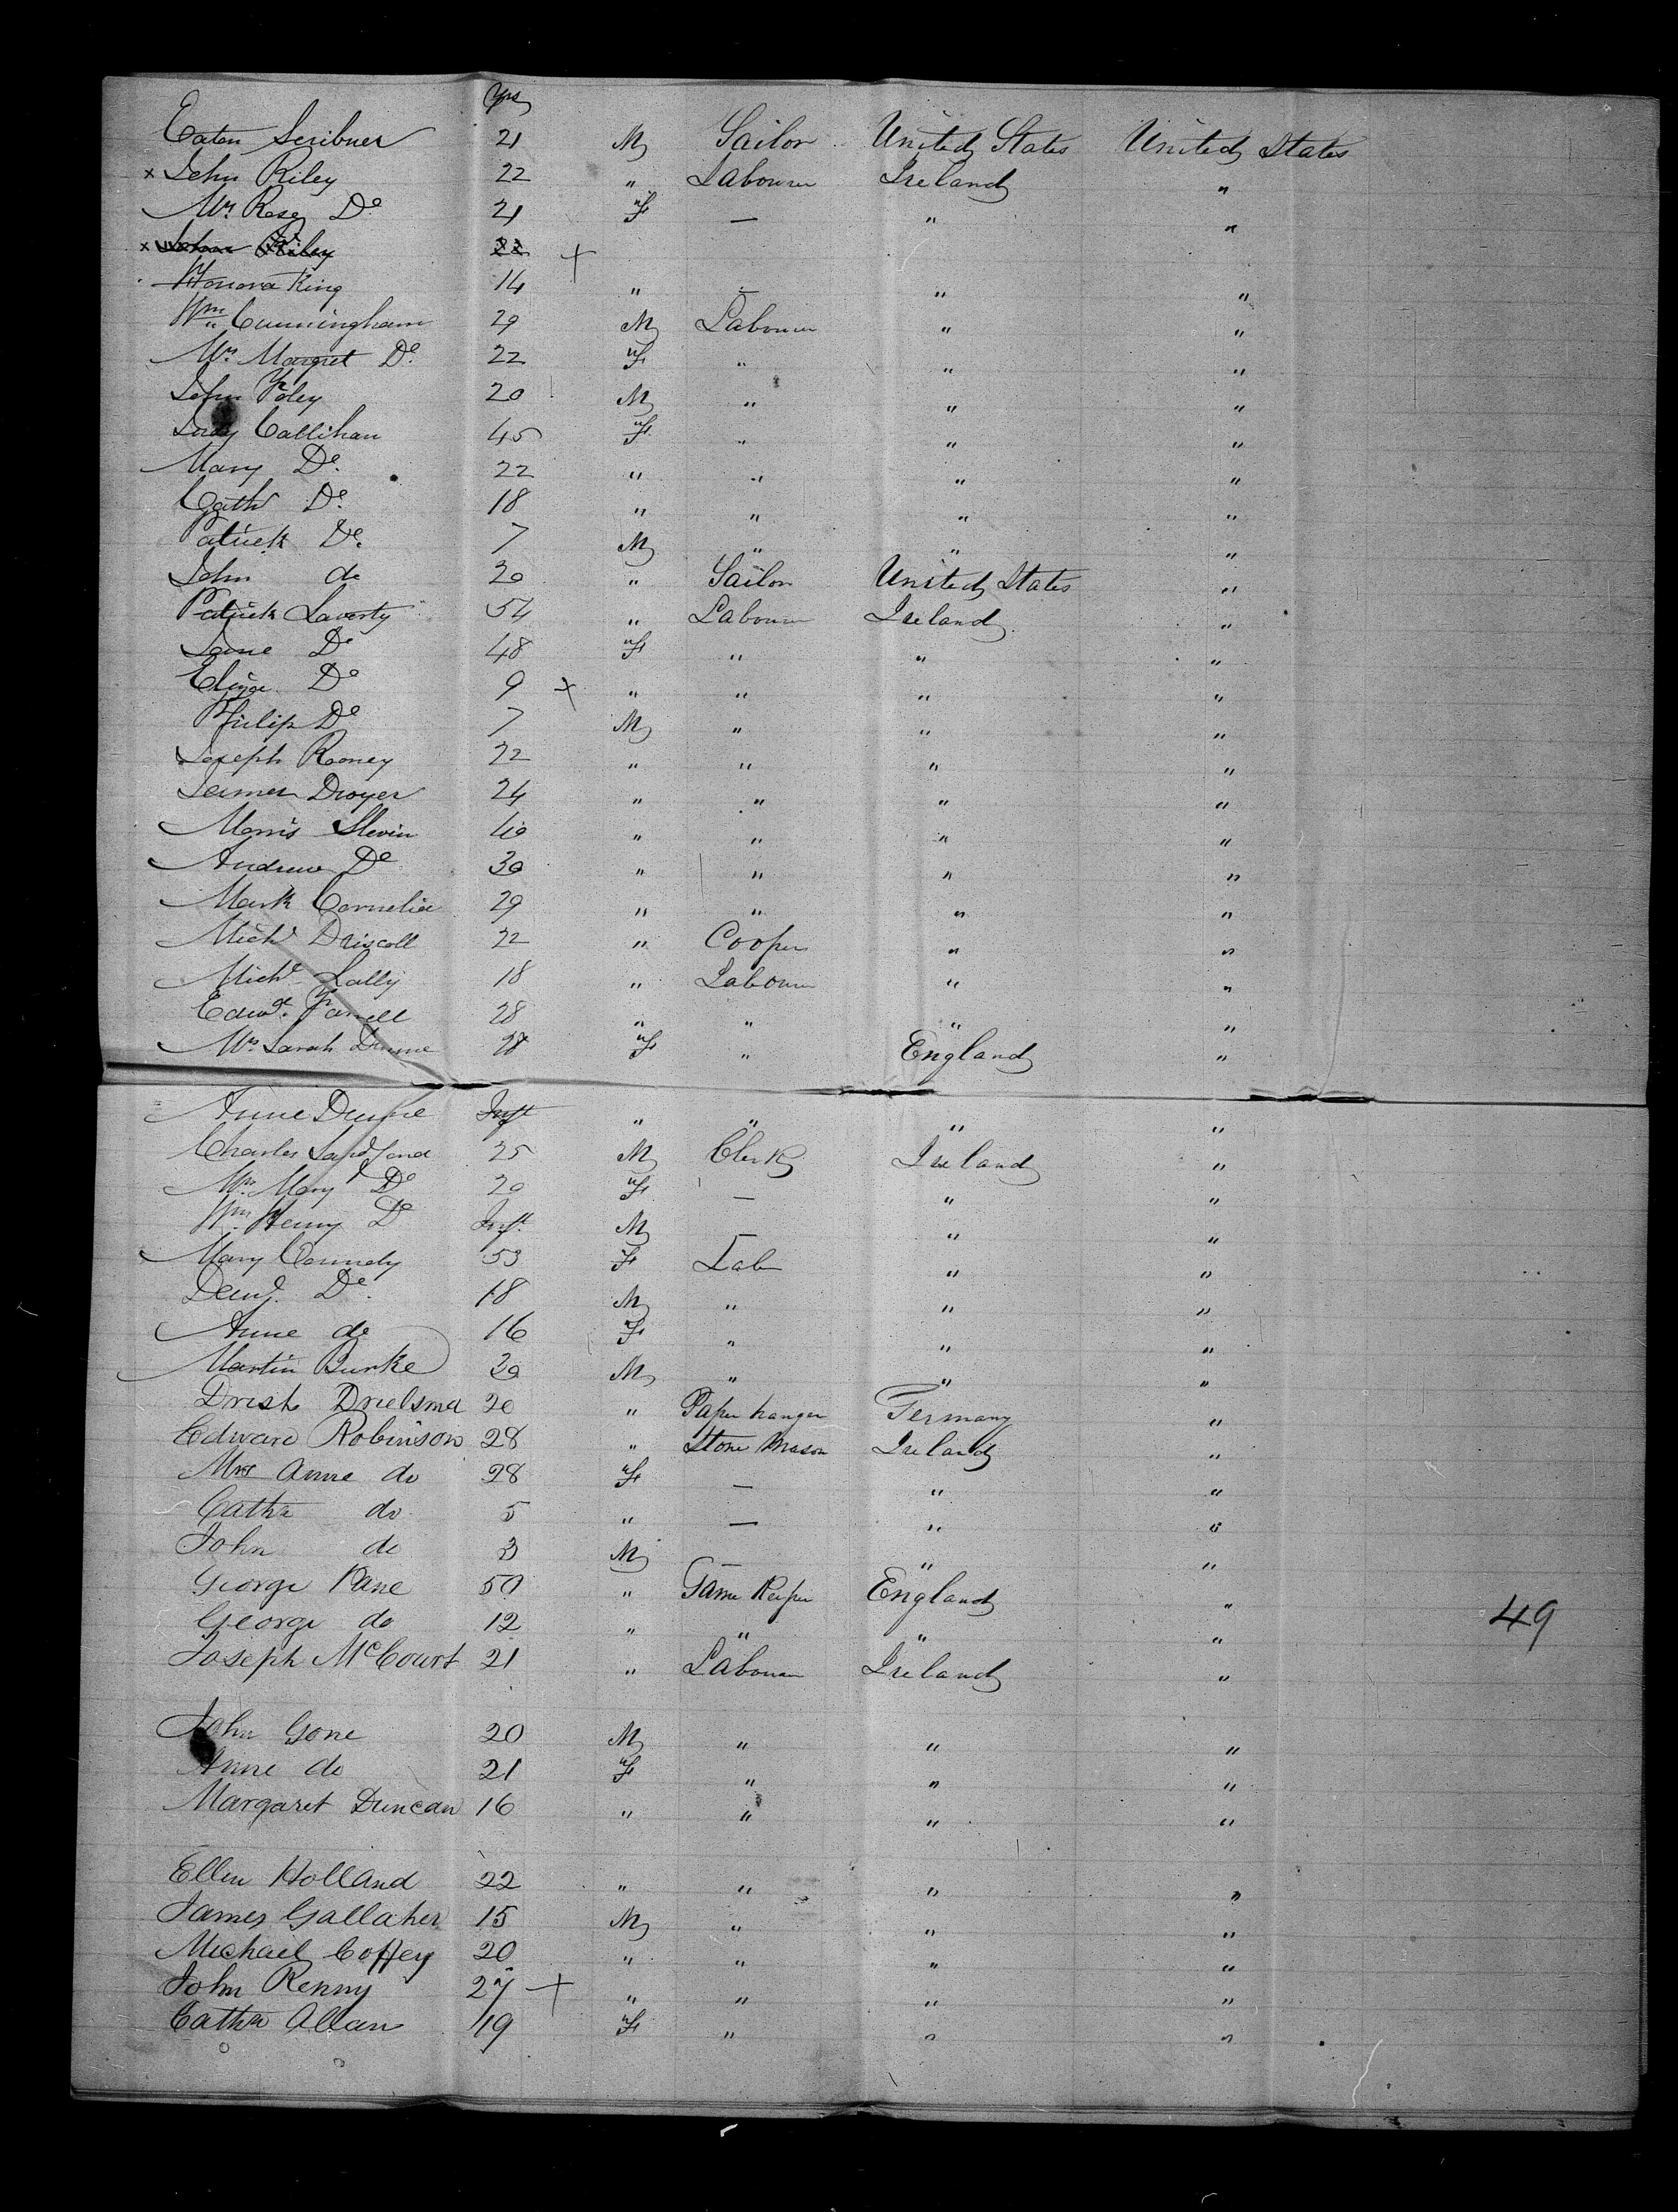 Yrs
Eaton Scribner 21 M Sailor United States United States
x John Riley 22 " Labourer Ireland "
Mrs Rose Do 21 F — " "
x John Riley 22 +
Honora King 14 " — " "
Wm Cunningham 29 M Labourer " "
Mrs Margret Do 22 F " " "
John Foley 20 M " " "
Judy Callihan 45 F " " "
Mary Do 22 " " " "
Cath Do 18 " " " "
Patrick Do 7 M " " "
John do 20 " Sailor United States "
Patrick Laverty 54 " Labourer Ireland "
Jane Do 48 F " " "
Eliza Do 9 + " " " "
Philip Do 7 M " " "
Joseph Rooney 22 " " " "
James Dwyer 24 " " " "
Morris Slevin 40 " " " "
Andrew Do 30 " " " "
Mark Cornelia 29 " " " "
Michl Driscoll 22 " Cooper " "
Michl Lally 18 " Labourer " "
Edwd Farrell 28 " " " "
Mrs Sarah Dunne 28 F " England "
Anne Dunne Inft " " " "
Charles Sandford 25 M Clerk Ireland "
Mrs Mary Do 20 F — " "
Wm Henry Do Inft M — " "
Mary Connedy 53 F Labr " "
Do 18 M " " "
Anne do 16 F " " "
Martin Burke 30 M " " "
Drielsma 20 " Paper hanger Germany "
Edward Robinson 28 " Stone Mason Ireland "
Mrs Anne do 28 F — " "
Cathr do 5 " — " "
John do 3 M — " "
George Kane 50 " Game Keeper England "
George do 12 " " " "
49
Joseph McCourt 21 " Labourer Ireland "
John Gone 20 M " " "
Anne do 21 F " " "
Margaret Duncan 16 " " " "
Ellen Holland 22 " " " "
James Gallaher 15 M " " "
Michael Coffey 20 " " " "
John Renny 27 + " " " "
Cathr Allan 19 F " " "